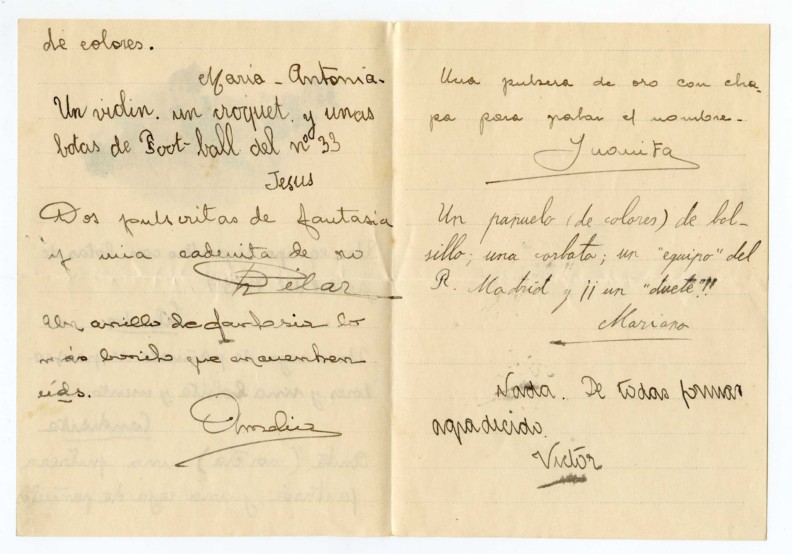 de colores.
Maria-Antonia-
Un violin. un croquet. y unas
botas de Foot-ball del nº 33
Jesus
Dos pulseritas de fantasia
y una cadenita de
Pilar
Un anillo de fantasia lo
más bonito que encuentren
uds.
Amalia
Una pulsera de oro con cha-
pa para grabar el nombre-
Juanita
Un pañuelo (de colores) de bol-
sillo; una corbata; un "equipo" del
R. Madrid y ¡¡ un "duete"!!
Mariano
Nada. De todas formas
agradecido.
Victor